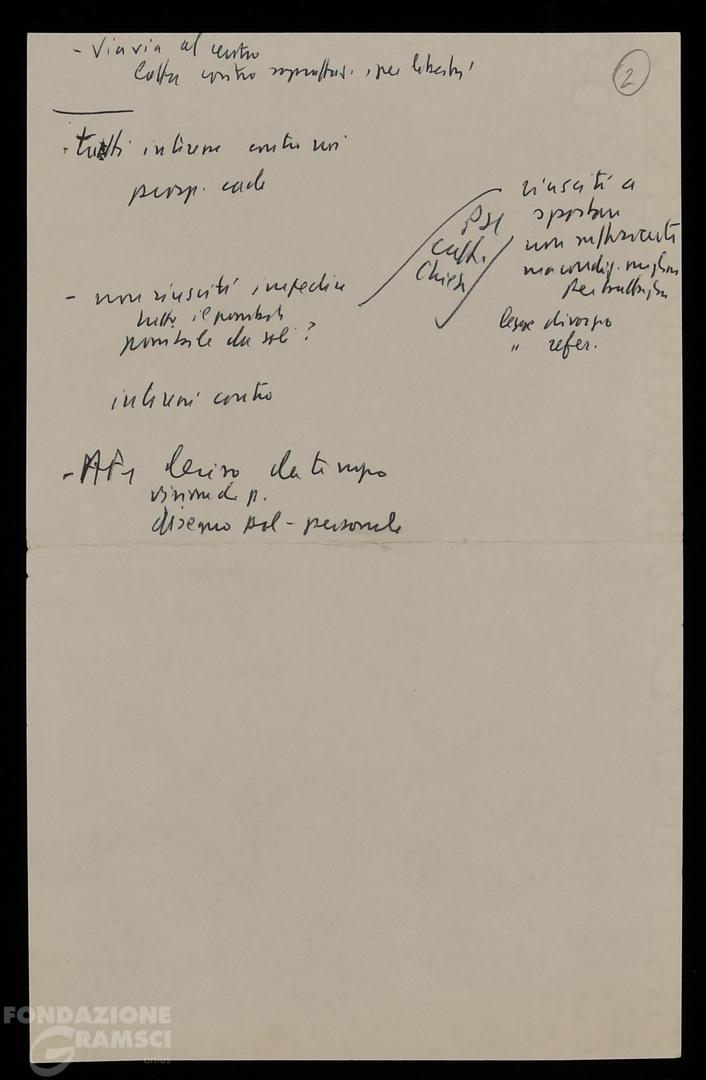 - Via via al centro
lotta contro sopraffaz. , per libertà
2
- tutti insieme contro noi
prosp. cade
- non riusciti impedire
tutto il possibile
possibile da soli ?
PSI
catt.
Chiesa
riusciti a
spostare
non sufficiente
ma condiz. migliori
per battaglia
legge divorzio
" refer.
insieme contro
- deciso da tempo
visione di p.
disegno pol - personale
FONDAZIONE
GRAMSCI
onlus